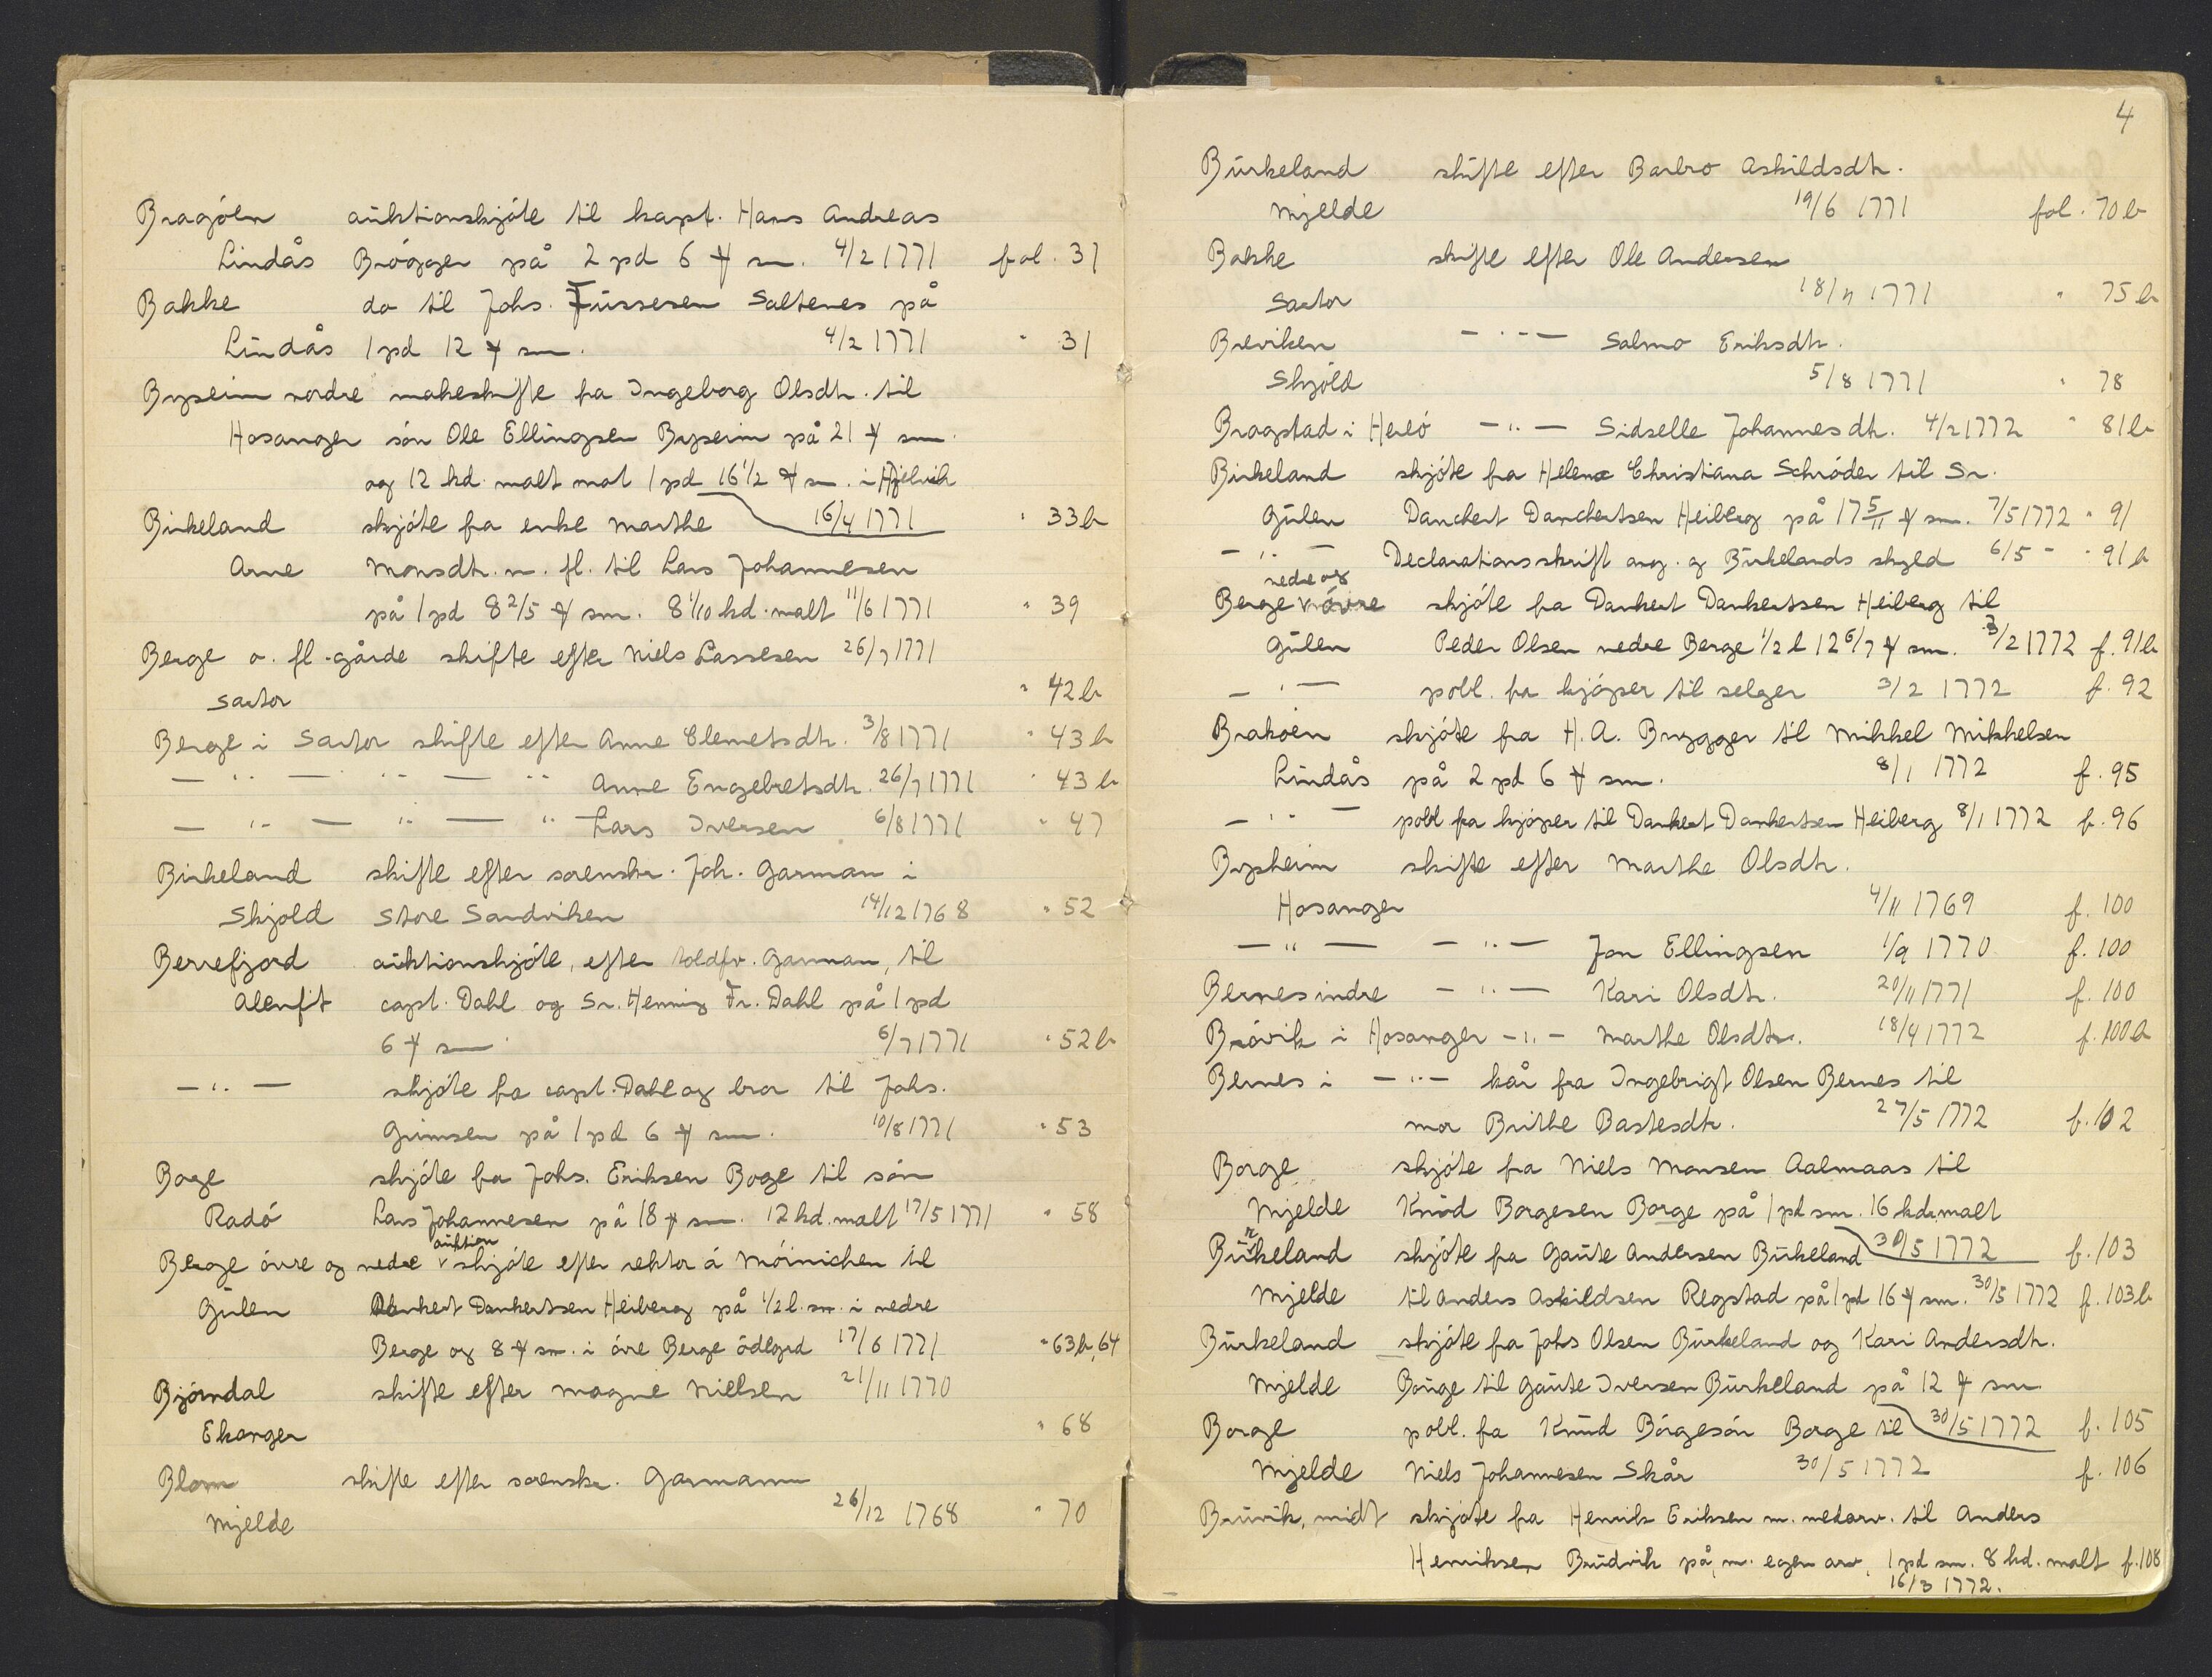 Bragøen auktionskjøte til kapt. Hans Andreas
Lindås Brøgger på 2 pd 6 ℔ sm. 4/2 1771 fol. 31
Bakke do til Johs. Fussesen Saltenes på
Lindås 1 pd 12 ℔ sm. 4/2 1771 " 31
Bryseim nordre makeskifte fra Ingeborg Olsdtr. til
Hosanger søn Ole Ellingsen Bryseim på 21 ℔ sm.
og 12 kd. malt mot 1 pd 16 1/2 ℔ sm. i Hjelvik
Birkeland skjøte fra enke Marthe 16/4 1771 " 33b
Arne Monsdtr. m. fl. til Lars Johannesen
på 1 pd 8 2/5 ℔ sm. 8 1/10 kd. malt 11/6 1771 " 39
Berge o. fl. gårde skifte efter Niels Lassesen 26/7 1771
Sartor " 42b
Berge i Sartor skifte efter Anne Clemetsdtr. 3/8 1771 " 43b
— " — " — " Anne Engebretsdtr. 26/7 1771 " 43b
— " — " — " Lars Iversen 6/8 1771 " 47
Birkeland skifte efter sorenskr. Joh. Garman i
Skjold Store Sandviken 14/12 1768 " 52
Berrefjord auktionskjøte, efter toldfv. Garman, til
Alenfit capt. Dahl og Sr. Henning Fr. Dahl på 1 pd
6 ℔ sm. 6/7 1771 " 52b
— " — skjøte fra capt. Dahl og bror til Johs.
Grimsen på 1 pd 6 ℔ sm. 10/8 1771 " 53
Boge skjøte fra Johs. Eriksen Boge til søn
Radø Lars Johannesen på 18 ℔ sm. 12 kd. malt 17/5 1771 " 58
Berge øvre og nedre auktion skjøte efter rektor á Møinichen til
Gulen Dankert Dankertsen Heiberg på 1/2 l. sm. i nedre
Berge og 8 ℔ sm. i øvre Berge ödegrd 17/6 1771 " 63b, 64
Bjørndal skifte efter Magne Nielsen 21/11 1770
Ekanger " 68
Blom skifte efter sorenskr. Garmann
Mjelde 26/12 1768 " 70
4
Burkeland skifte efter Barbro Askildsdtr.
Mjelde 19/6 1771 fol. 70b
Bakke skifte efter Ole Andersen
Sartor 18/7 1771 " 75b
Breviken — " — Salmo Eriksdtr.
Skjold 5/8 1771 " 78
Bragstad i Herlø — " — Sidselle Johannesdtr. 4/2 1772 " 81b
Birkeland skjøte fra Helena Christiana Schrøder til Sr.
Gulen Danckert Danchertsen Heiberg på 17 5/11 ℔ sm. 7/5 1772 " 91
— " — Declarationsskrift ang. og Burkelands skyld 6/5 - " 91b
Berge nedre og øvre skjøte fra Dankert Dankertsen Heiberg til
Gulen Peder Olsen nedre Berge 1/2 l 12 6/7 ℔ sm. 3/2 1772 f. 91b
— " — pobl. fra kjøper til selger 3/2 1772 f. 92
Brakøen skjøte fra H. A. Brygger til Mikkel Mikkelsen
Lindås på 2 pd 6 ℔ sm. 8/1 1772 f. 95
— " — pobl fra kjøper til Dankert Dankertsen Heiberg 8/1 1772 f. 96
Brysheim skifte efter Marthe Olsdtr.
Hosanger 4/11 1769 f. 100
— " — — " — Jon Ellingsen 1/9 1770 f. 100
Bernes indre — " — Kari Olsdtr. 20/11 1771 f. 100
Brøvik i Hosanger — " — Marthe Olsdtr. 18/4 1772 f. 100b
Bernes i — " — kår fra Ingebrigt Olsen Bernes til
mor Brithe Bastesdtr. 27/5 1772 f. 102
Borge skjøte fra Niels Monsen Aalmaas til
Mjelde Knud Borgesen Borge på 1 pd sm. 16 kdr. malt
Burkeland skjøte fra Gaute Andersen Birkeland 30/5 1772 f. 103
Mjelde til Anders Askildsen Regstad på 1 pd 16 ℔ sm. 30/5 1772 f. 103b
Burkeland skjøte fra Johs Olsen Burkeland og Kari Andersdtr.
Mjelde Bouge til Gaute Iversen Burkeland på 12 ℔ sm
Borge pobl. fra Knud Børgesøn Borge til 30/5 1772 f. 105
Mjelde Niels Johannesen Skår 30/5 1772 f. 106
Bruvik, midt skjøte fra Henrik Eriksen m. medarv. til Anders
Henriksen Brudvik på, m. egen arv, 1 pd sm. 8 kd. malt f. 108
16/3 1772.